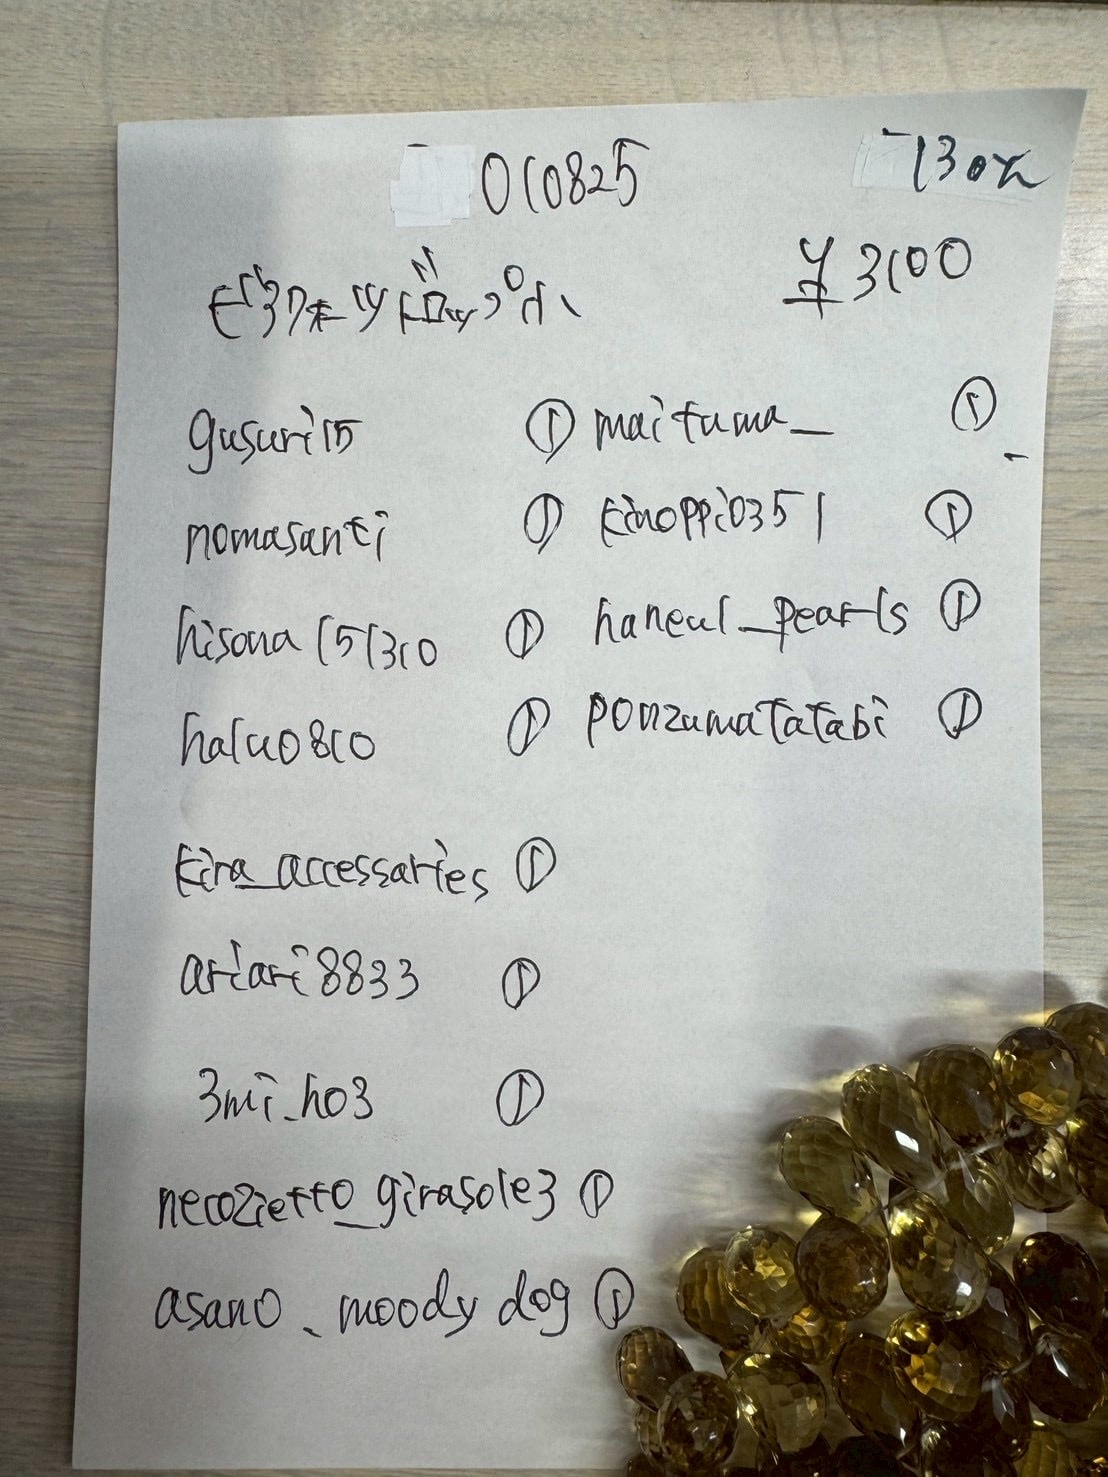 010825
130㎝
¥3100
gusuri15 ①
nomasanti ①
hisana151310 ①
halu0810 ①
kira_accessaries ①
ariari8833 ①
3mi_ho3 ①
necozietto_girasole3 ①
asano、moody dog ①
maituma_ ①
kinoppi0351 ①
haneul_pearls ①
ponzumatatabi ①